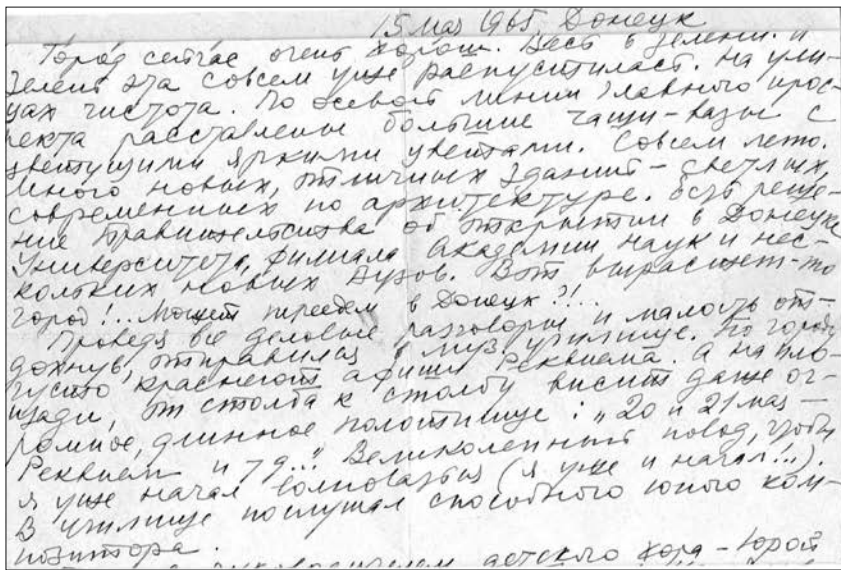 15 мая 1965 Донецк
Город сейчас очень хорош. Весь в зелени. и
зелень эта совсем уже распустилась. На ули-
цах чистота. По осевой линии главного прос-
пекта расставлены большие чаши-вазы с
цветущими яркими цветами. Совсем лето.
Много новых, отличных зданий – светлых,
современных по архитектуре. Есть реше-
ние Правительства об открытии в Донецке
Университета, филиала Академии наук и нес-
кольких новых Вузов. Вот вырастет-то
город!.. Может переедем в Донецк?!..
Проведя все деловые разговоры и малость от-
дохнув, отправился в муз. училище. По городу
густо краснеют афиши Реквиема. А на пло-
щади, от столба к столбу висит даже ог-
ромное, длинное полотнище: "20 и 21 мая –
Реквием и т.д..." Великолепный повод, чтобы
я уже начал волноваться (я уже и начал!..).
В училище послушал способного юного ком-
позитора.
детского хора – Юрой